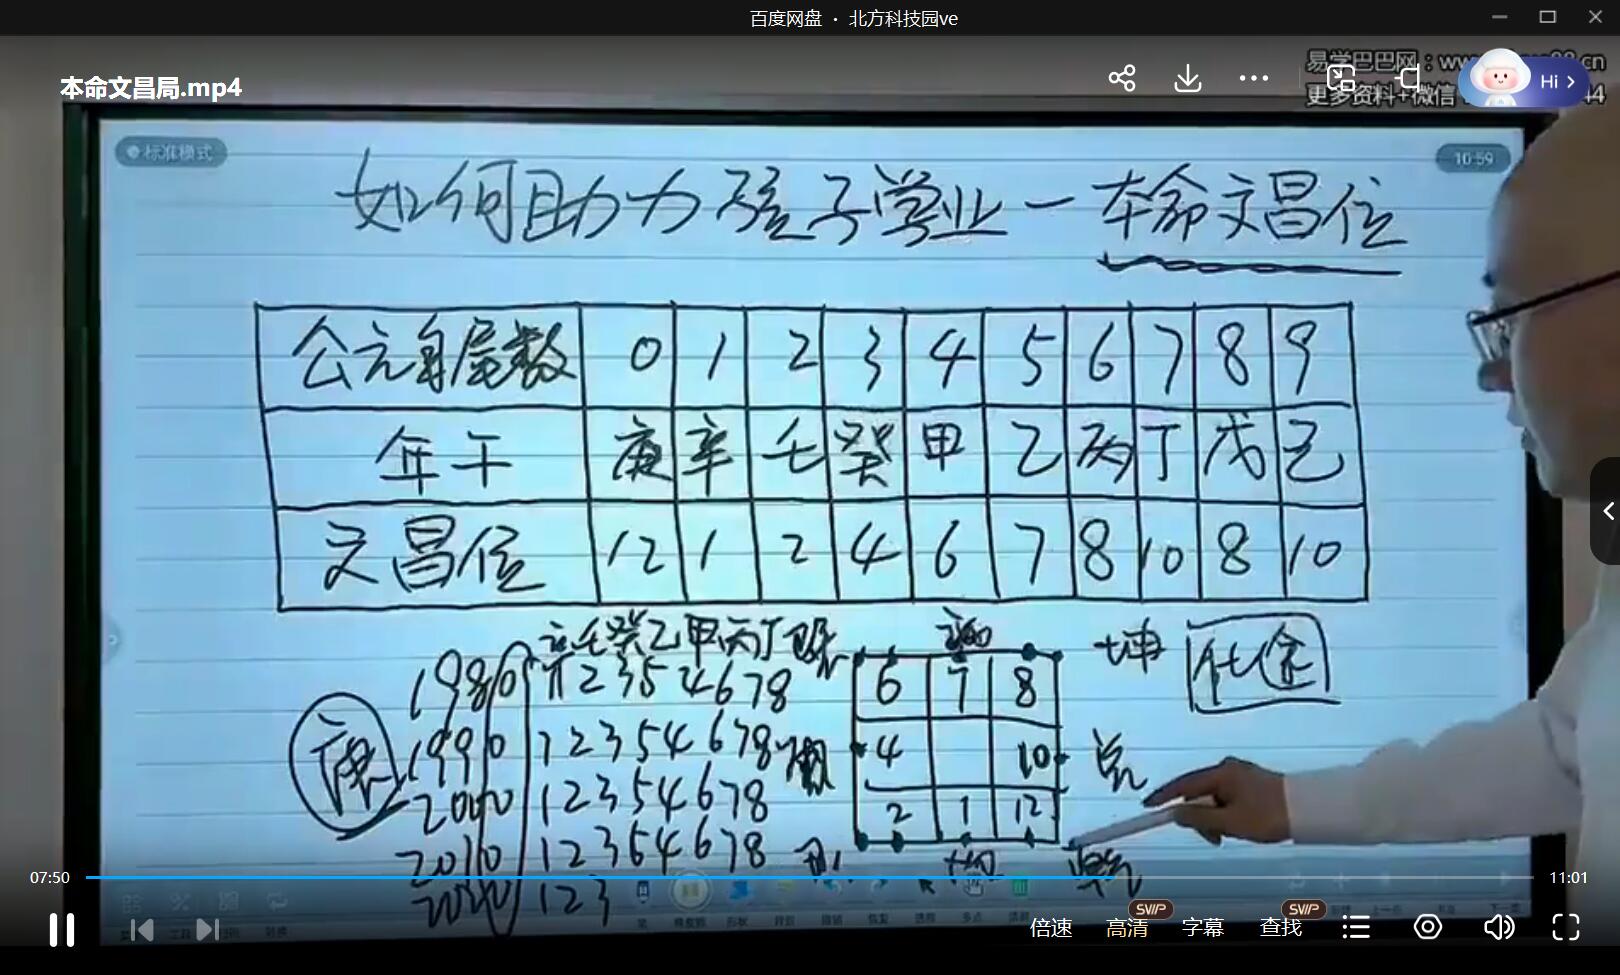 百度网盘 · 北方科技园ve
易学巴巴网：
本命文昌局.mp4
Hi
更多资料+微信
标准模式
10:59
如何助力孩子学业一本命文昌位
公元年尾数 0 1 2 3 4 5 6 7 8 9
年干 庚 辛 壬 癸 甲 乙 丙 丁 戊 己
文昌位 12 1 2 4 6 7 8 10 8 10
辛壬癸乙甲丙丁
1980 1 2 3 5 4 6 7 8
1990 1 2 3 5 4 6 7 8
2000 1 2 3 5 4 6 7 8
2010 1 2 3 5 4 6 7 8
2020 1 2 3
庚
6 7 8
4 10
2 1 12
坤
兑
乾
07:50
11:01
倍速
SVIP
高清
字幕
SVIP
查找